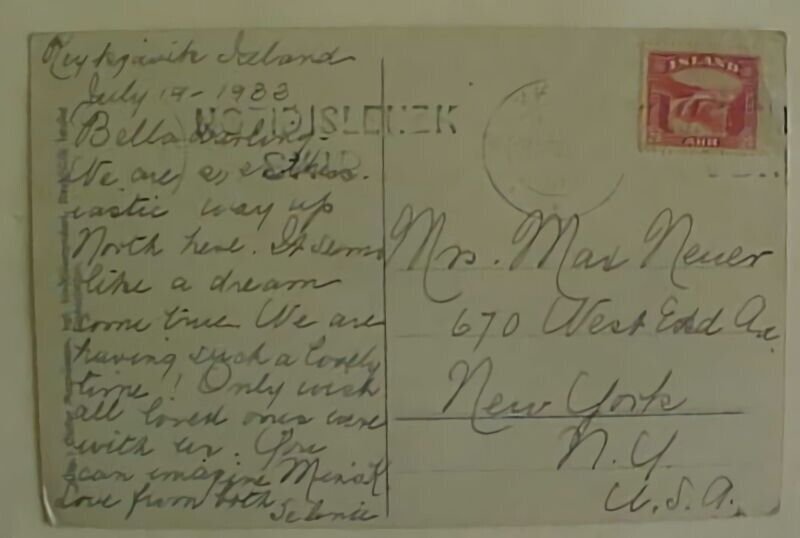 Reykjavik Iceland
July 19-1933
Bella darling-
We are so enthus-
iastic way up
North here. It seems
like a dream
come true. We are
having such a lovely
time! Only wish
all loved ones were
with us. You
can imagine
Love from both
ISLAND
AUR
Mrs. Max Neuer
670 West End Ave
New York
N.Y.
U.S.A.